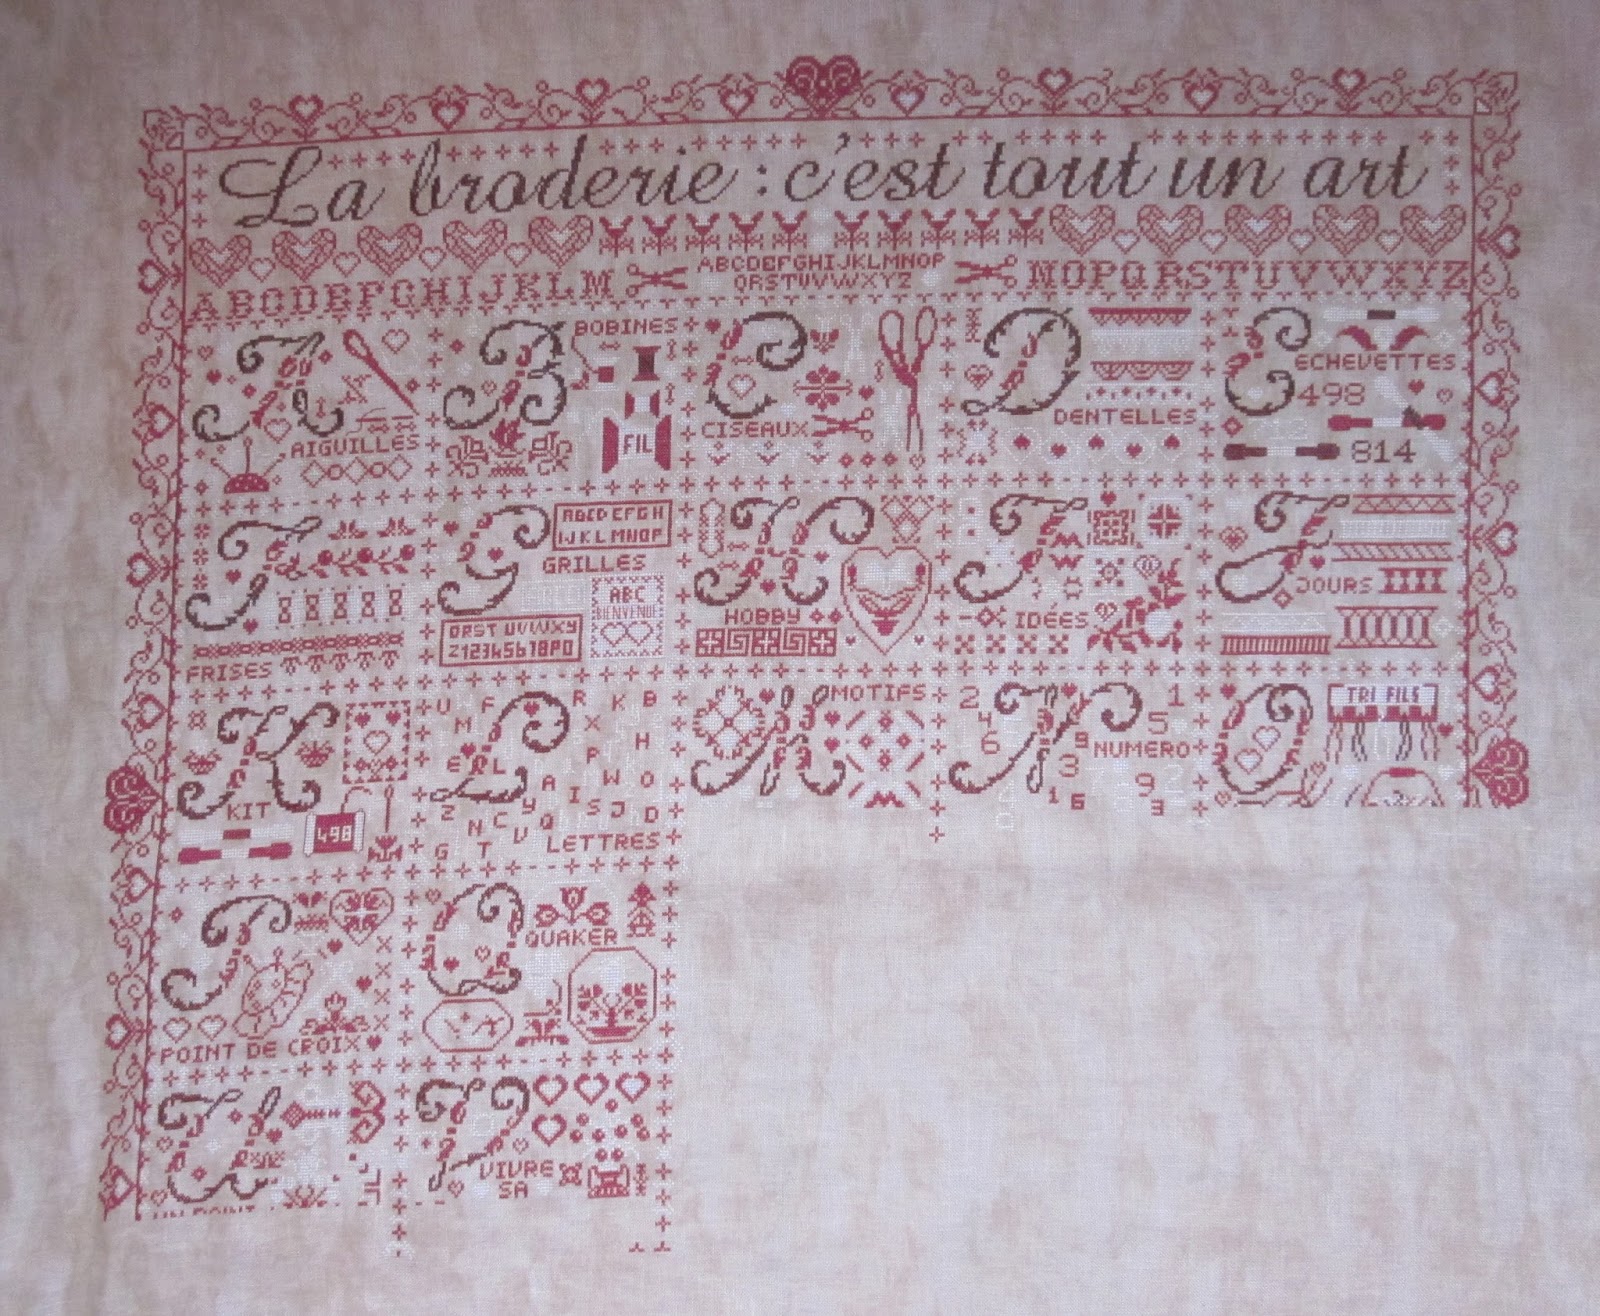 La broderie : c'est tout un art
ABCDEFGHIJKLMNOP
QRSTUVWXYZ
ABCDEFGHIJKLM
NOPQRSTUVWXYZ
A
AIGUILLES
B
BOBINES
FIL
C
CISEAUX
D
DENTELLES
E
ECHEVETTES
498
814
F
FRISES
G
ABCDEFGH
IJKLMNOP
GRILLES
ABC
BIENVENUE
QRSTUVWXY
Z1234567890
H
HOBBY
I
IDÉES
J
JOURS
K
KIT
498
L
U F R K B
M X H
E R L P W O
A I S J D
Z N C Y Q
G T V
LETTRES
M
MOTIFS
N
2 1
4 5
6 9
NUMERO
3 9 2
1 6 3
O
TRI FILS
P
POINT DE CROIX
Q
QUAKER
U
UN POINT
V
VIVRE
SA